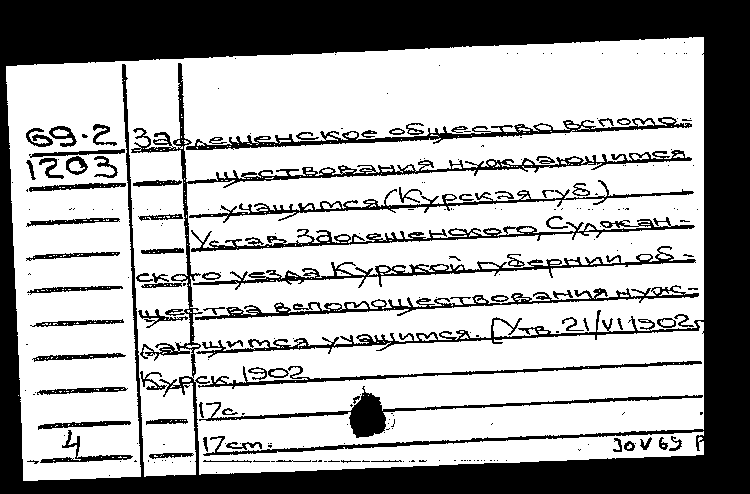 69.2
1203
Заолешенское общество вспомо-
ществования нуждающимся
учащимся (Курская губ.)
Устав Заолешенского, Суджан-
ского уезда Курской губернии, об-
щества вспомоществования нуж-
дающимся учащимся. [Утв. 21/VI 1902г
Курск, 1902
17с.
17см.
4
30 V 69 Р